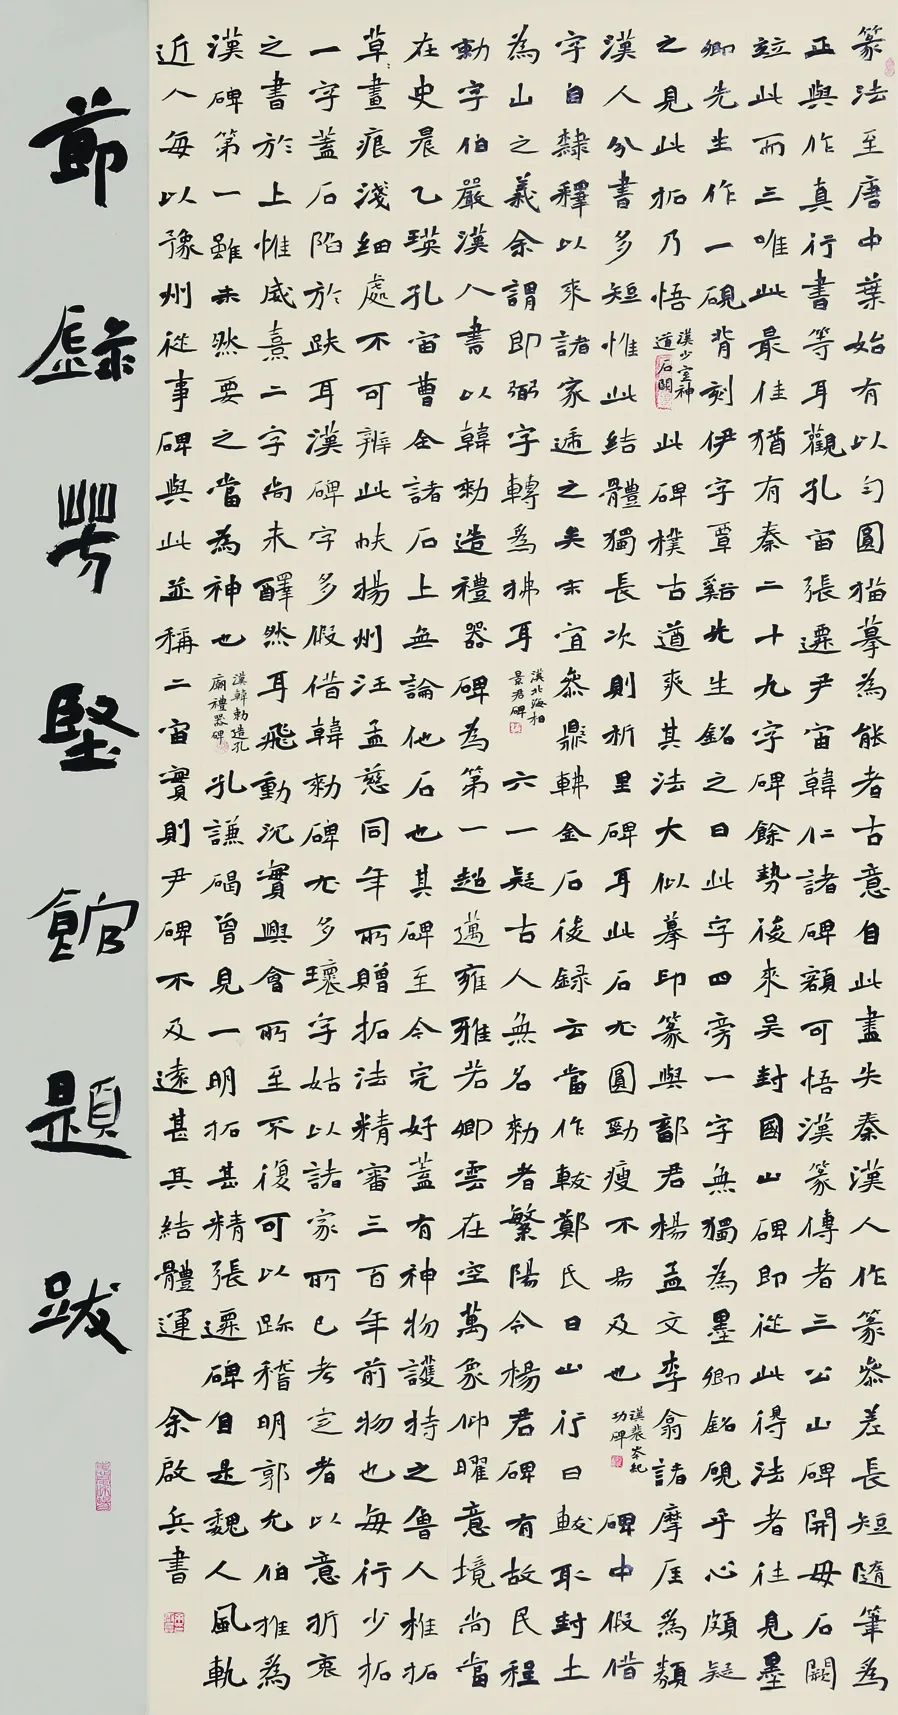 篆法至唐中葉始有以勻圓描摹為能者古意自此盡失秦漢人作篆參差長短隨筆為
正與作真行書等耳觀孔宙張遷尹宙韓仁諸碑額可悟漢篆傳者三公山碑開母石闕
竝此而三唯此最佳猶有秦二十九字碑餘勢後來吳封國山碑即從此得法者往見墨
卿先生作一硯背刻伊字覃谿先生銘之曰此字四旁一字無獨為墨卿銘硯乎心頗疑
之見此拓乃悟
漢少室神
道石闕
此碑樸古遒爽其法大似摹印篆與鄐君楊孟文李翕諸摩厓為類
漢人分書多短惟此結體獨長次則析里碑耳此石尤圓勁瘦不易及也
漢裴岑紀
功碑
碑中假借
字自隸釋以來諸家遞之矣末宜參鼎金石後録云當作軷鄭氏曰山行曰軷取封土
為山之義余謂即弼字轉為狒耳
漢北海相
景君碑
六一疑古人無名勑者繁陽令楊君碑有故民程
勑字伯嚴漢人書以韓勑造禮器碑為第一超邁雍雅若卿雲在空萬象仰曜意境尚當
在史晨乙瑛孔宙曹全諸石上無論他石也其碑至今完好蓋有神物護持之魯人椎拓
草:畫痕淺細處不可辨此帙揚州汪孟慈同年所贈拓法精審三百年前物也每行少拓
一字蓋石陷於趺耳漢碑字多假借韓勑碑尤多瓌字姑以諸家所已考定者以意折衷
之書於上惟咸熹二字尚未醳然耳飛動沉實興會所至不復可以跡稽明郭允伯推為
漢碑第一雖未然要之當為神也
漢韓勑造孔
廟禮器碑
孔謙碣曾見一明拓甚精張遷碑自是魏人風軌
近人每以豫州從事碑與此並稱二宙實則尹碑不及遠甚其結體運
余啟兵書
節錄芳堅館題跋